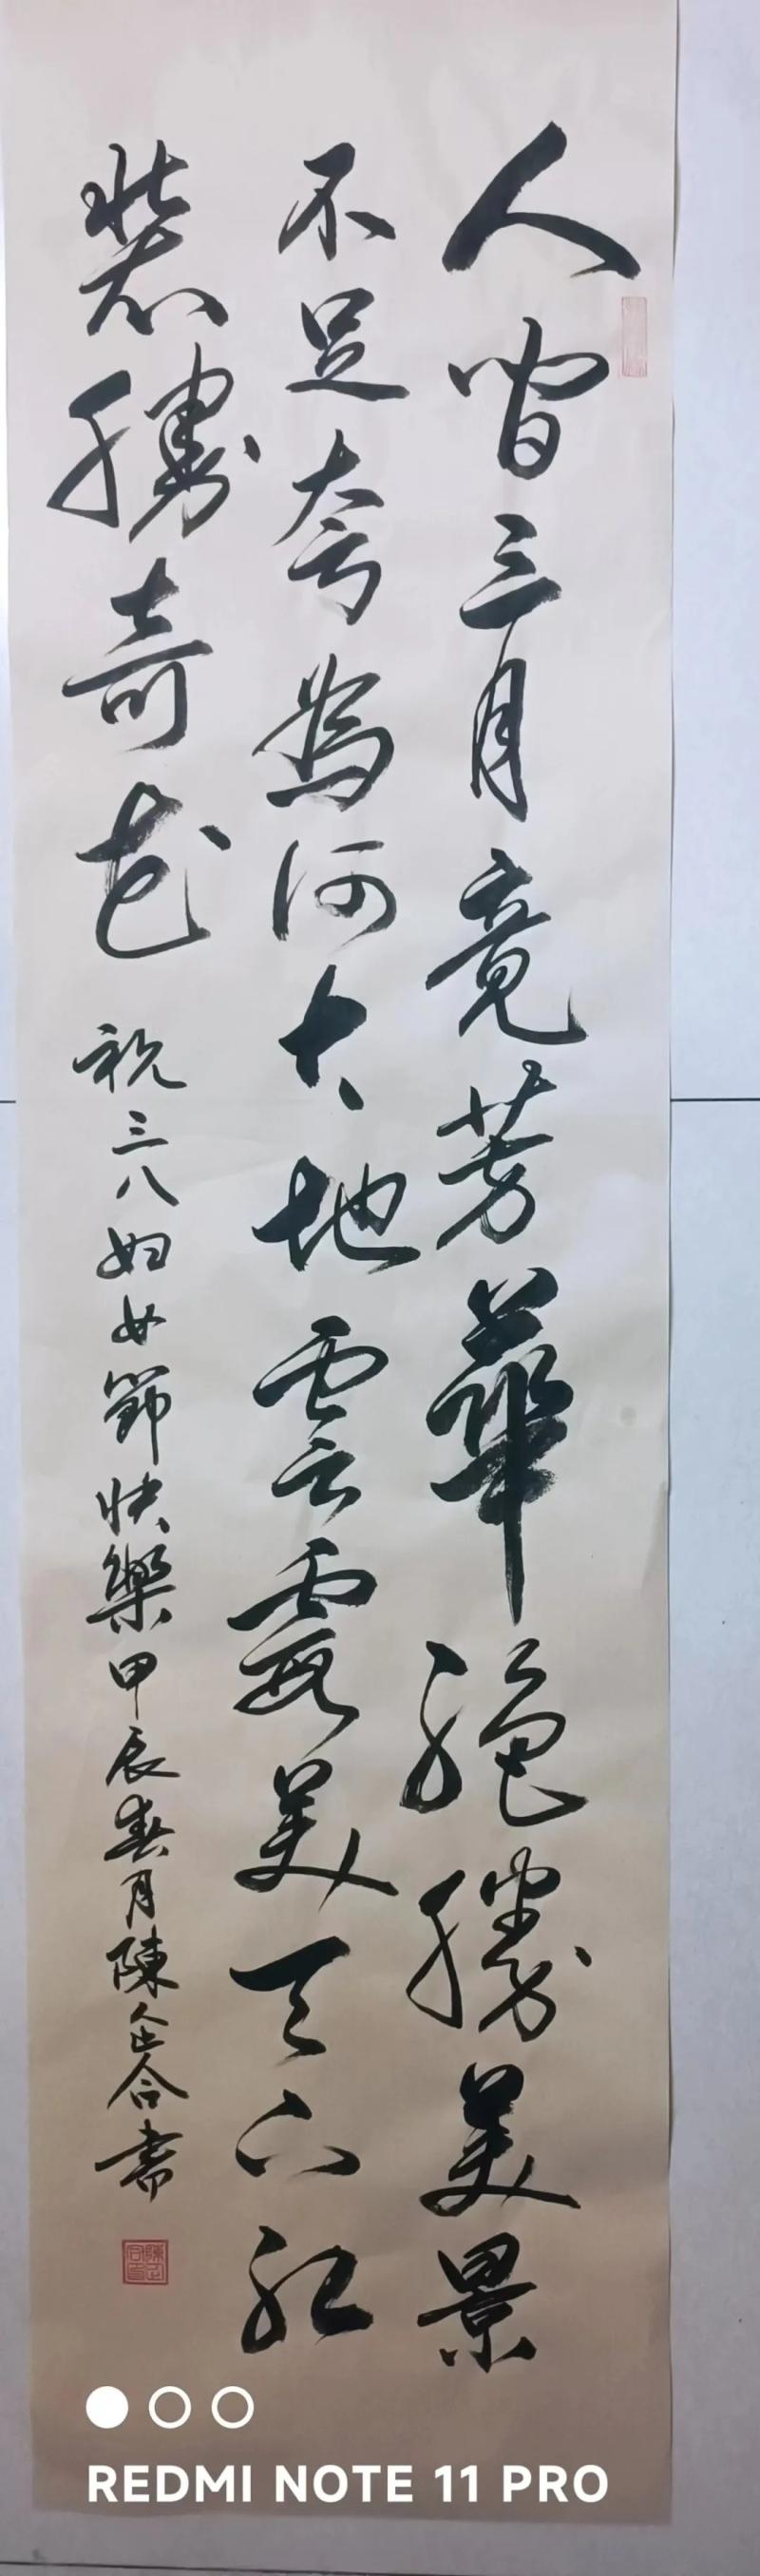 人間三月竟芳華絕勝美景
不足夸為何大地雲霞美天下紅
裝勝奇花
祝三八妇女節快樂甲辰春月陳企合書
REDMI NOTE 11 PRO